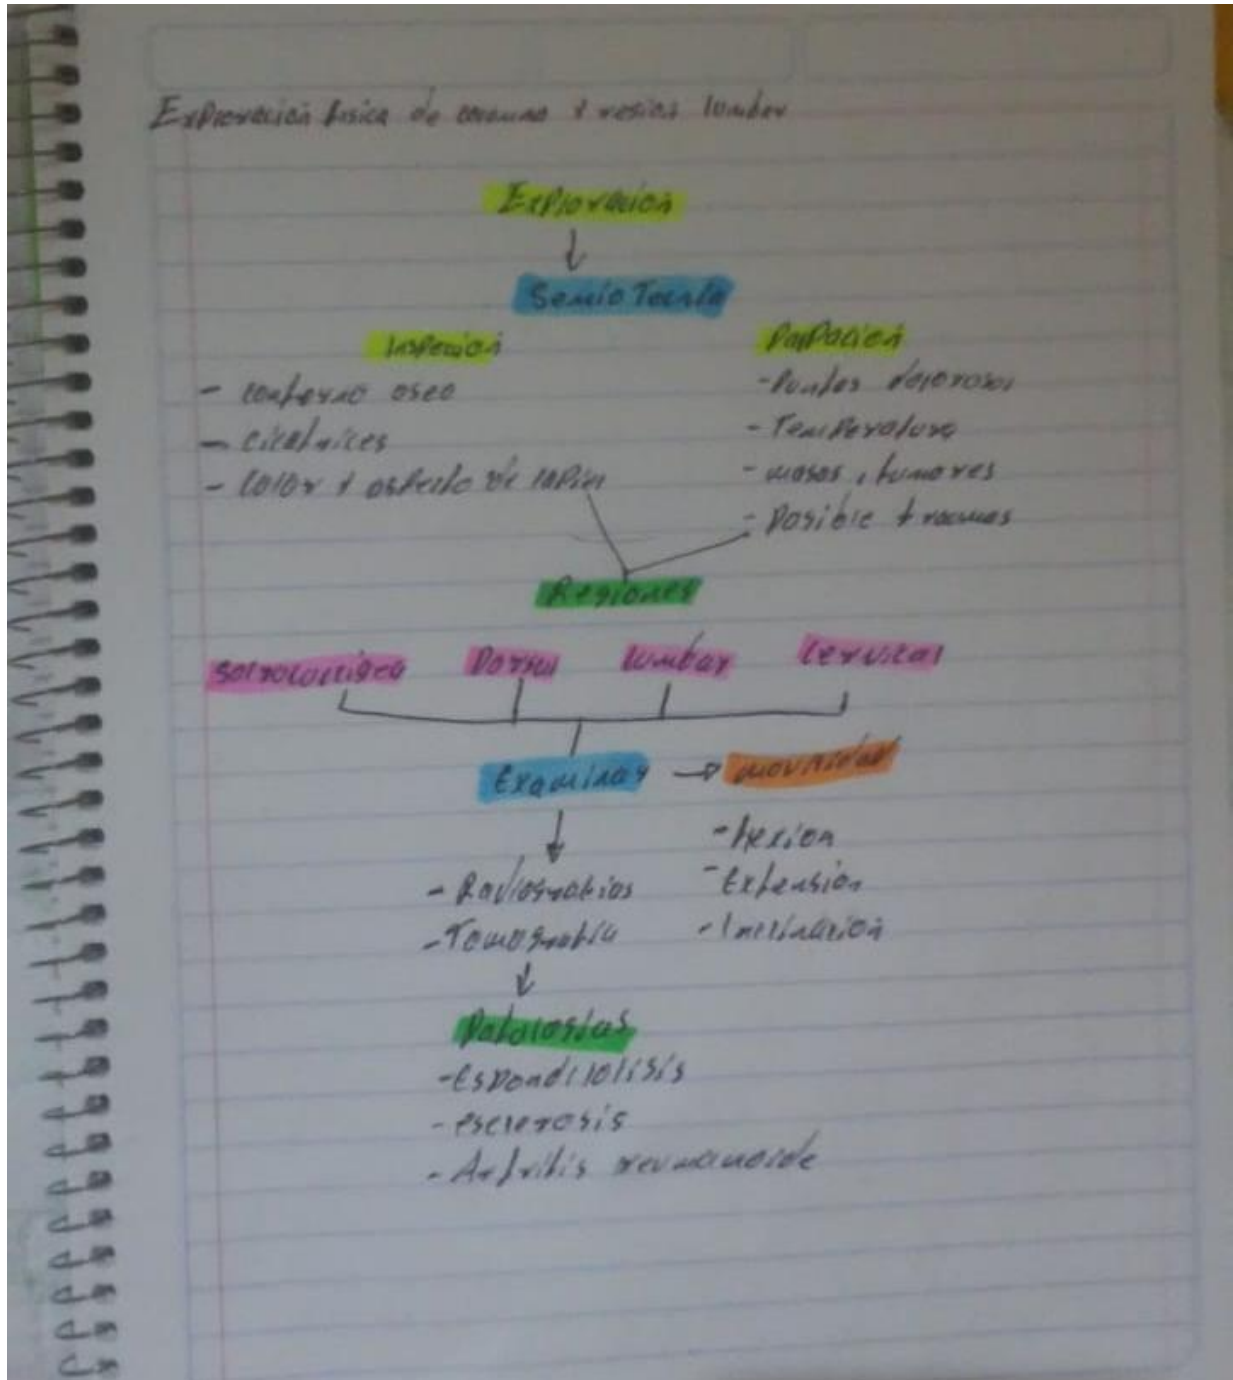 Exploración fisica de columna y region lumbar
Exploración
Semiotecnia
Inspección
- contorno oseo
- cicatrices
- color y aspecto de la piel
Palpación
- Puntos dolorosos
- Temperatura
- masas, tumores
- Posible traumas
Regiones
Sacrococcigea Dorsal lumbar Cervical
Examinar → movilidad
- Radiografias
- Tomografia
- flexion
- Extension
- Inclinación
Patologias
- Espondilolisis
- esclerosis
- Artritis reumanoide